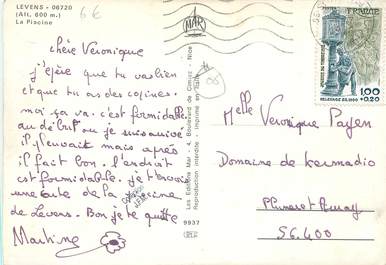 LEVENS - 06720
(Alt. 600 m.)
La Piscine
6€
chère Véronique
j'espère que tu vas bien
et que tu as des copines.
moi ça va. c'est formidable
au début ou je suis arrivé
il pleuvait mais après
il fait bon. l'endroit
est formidable. je t'envoie
une carte de la piscine
de Levens. Bon je te quitte
Martine
MAR
06
Les Editions Mar - 4, Boulevard de Cimiez - Nice
Reproduction interdite - Imprimé en Italie
9937
FRANCE
1,00
+0,20
Melle Véronique Payen
Domaine de kermadio
56.400